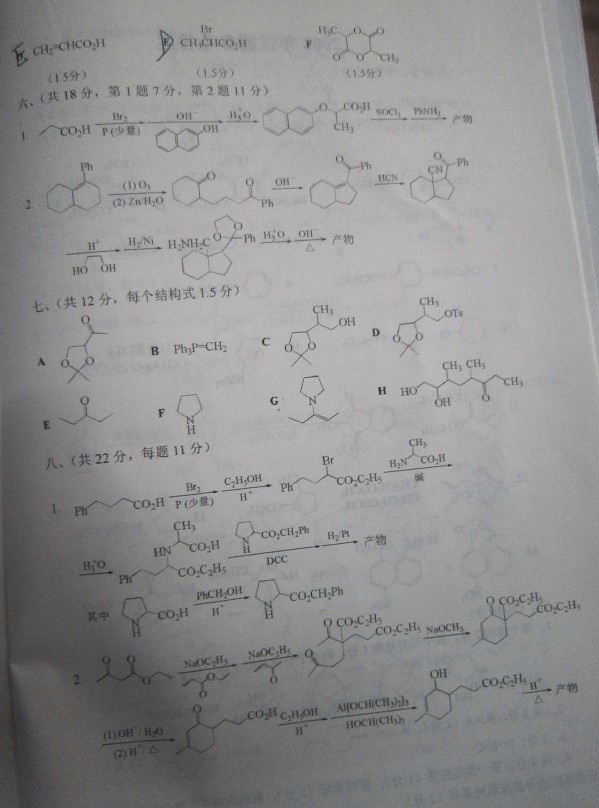 E CH₂=CHCO₂H
Br
CH₃CHCO₂H
F H₃C O O O O CH₃
(1.5分) (1.5分) (1.5分)
六、(共 18 分，第 1 题 7 分，第 2 题 11 分)
1 CO₂H Br₂ P (少量) OH⁻ OH H₃⁺O O CO₂H CH₃ SOCl₂ PhNH₂ 产物
2. Ph (1) O₃ (2) Zn/H₂O O O Ph OH⁻ O Ph HCN CN O Ph
H⁺ HO OH H₂/Ni H₂NH₂C O O Ph H₃⁺O OH⁻ △ 产物
七、(共 12 分，每个结构式 1.5 分)
A O O O
B Ph₃P=CH₂
C CH₃ OH O O
D CH₃ OTs O O
E O
F N H
G N
H HO OH CH₃ CH₃ O CH₃
八、(共 22 分，每题 11 分)
1. Ph CO₂H Br₂ P (少量) C₂H₅OH H⁺ Ph Br CO₂C₂H₅ H₂N CH₃ CO₂H 碱
H₃⁺O CH₃ HN CO₂H Ph CO₂C₂H₅ N H CO₂CH₂Ph DCC H₂/Pt 产物
其中 N H CO₂H PhCH₂OH H⁺ N H CO₂CH₂Ph
2. O O O NaOC₂H₅ O O NaOC₂H₅ O O CO₂C₂H₅ CO₂C₂H₅ O NaOCH₃ O CO₂C₂H₅ CO₂C₂H₅
(1) OH⁻/H₂O (2) H⁺/△ O CO₂H C₂H₅OH H⁺ Al[OCH(CH₃)₂]₃ HOCH(CH₃)₂ OH CO₂C₂H₅ H⁺ △ 产物